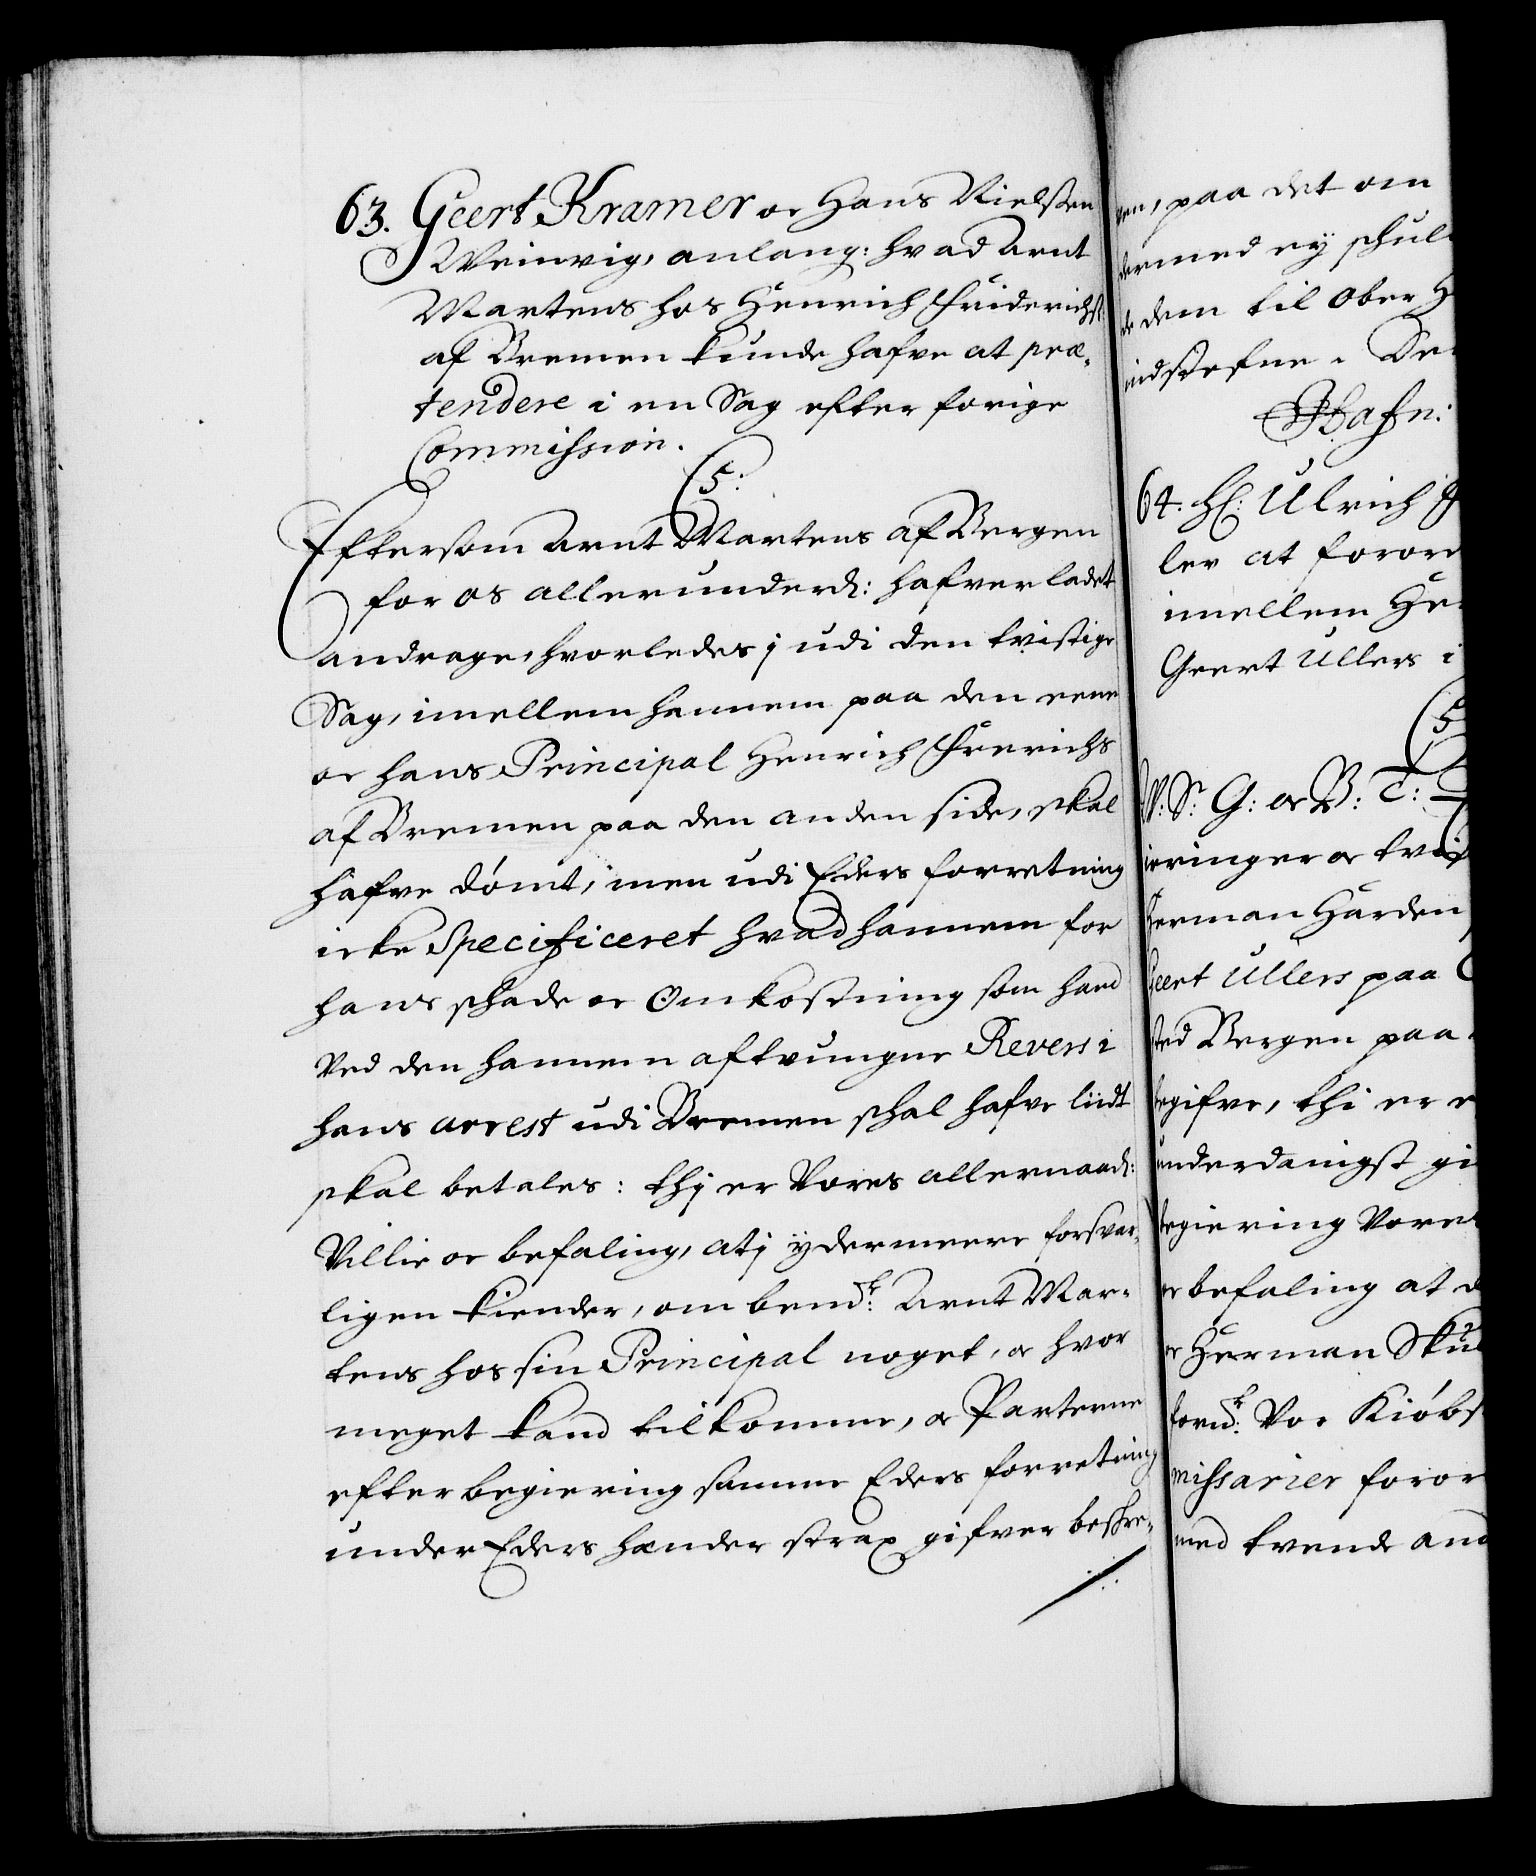 63. Geert Kramer oc Hans Nielssen
Weinvig, anlang: hvad Arnt
Martens hos Henrich Friderichs
af Bremen kunde hafve at præ-
tendere i en Sag efter forige
Commission.
C5:
Eftersom Arnt Martens af Bergen
for os allerunderd: hafver ladet
andrage, hvorledes j udi den tvistige
Sag, imellem hannem paa den eene
oc hans Principal Henrich Frerichs
af Bremen paa den anden side, skal
hafve dömt, men udi Eders forretning
icke Specificeret hvad hannem for
hans schade oc Omkostning som hand
ved den hannem aftvungne Revers i
hans arrest udi Bremen schal hafve liidt
skal betales: thj er Vores allernaad:
Villie oc befaling, at j ydermeere forsvar-
ligen kiender, om bemd:te Arnt Mar-
tens hos sin Principal noget, oc hvor
meget kand tilkomme, oc Parterne
efter begiering samme Eders forretning
under Eders hænder strax gifver beskre-
paa det om
med ey schul
dem til Ober H
indstefne.
Hafn:
64. Hl: Ulrich
ler at foror
imellem He
Geert Ullers i
C5
W. S. G: oc B: T:
ieringer oc tvi
Herman Harden
Geert Ullers paa
sted Bergen paa
begifve, thi er
underdanigst gi
begiering Vores
oc befaling at d
oc Herman Sku
forn:te Vor Kiöbs
missarier foror
med tvende and